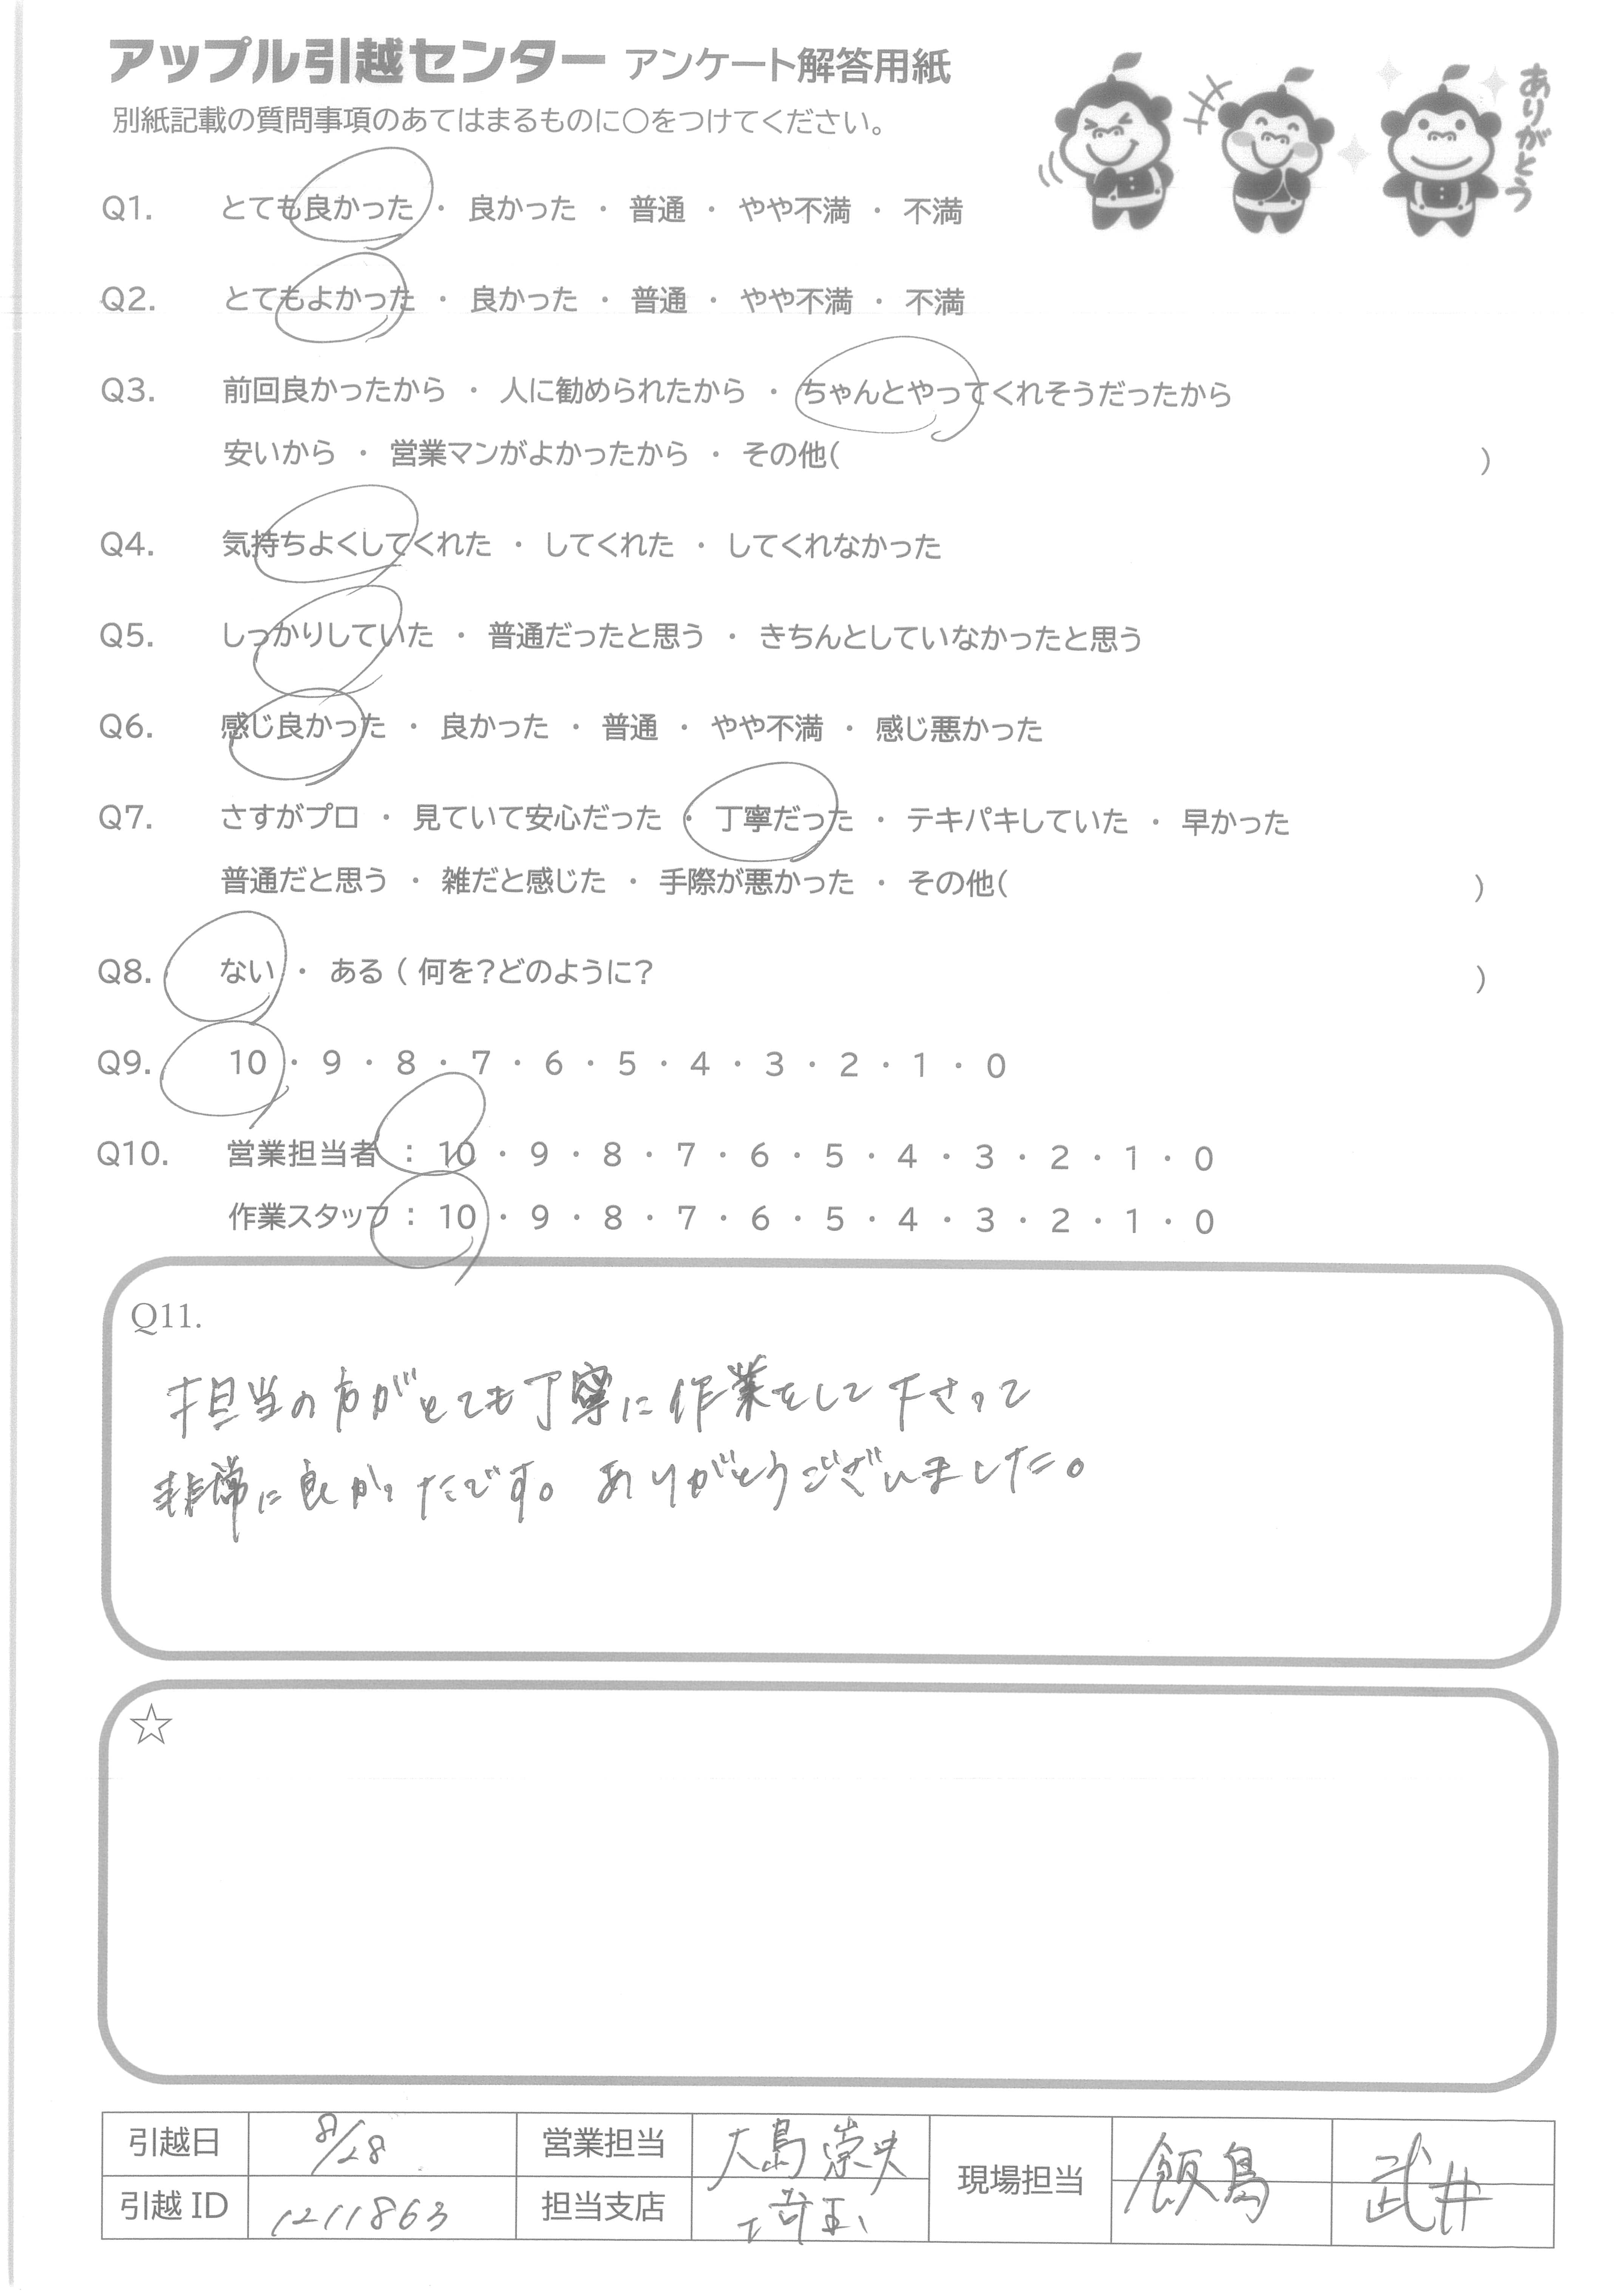 アップル引越センター アンケート解答用紙
別紙記載の質問事項のあてはまるものに○をつけてください。
ありがとう
Q1. とても良かった ・ 良かった ・ 普通 ・ やや不満 ・ 不満
Q2. とてもよかった ・ 良かった ・ 普通 ・ やや不満 ・ 不満
Q3. 前回良かったから ・ 人に勧められたから ・ ちゃんとやってくれそうだったから
安いから ・ 営業マンがよかったから ・ その他( )
Q4. 気持ちよくしてくれた ・ してくれた ・ してくれなかった
Q5. しっかりしていた ・ 普通だったと思う ・ きちんとしていなかったと思う
Q6. 感じ良かった ・ 良かった ・ 普通 ・ やや不満 ・ 感じ悪かった
Q7. さすがプロ ・ 見ていて安心だった ・ 丁寧だった ・ テキパキしていた ・ 早かった
普通だと思う ・ 雑だと感じた ・ 手際が悪かった ・ その他( )
Q8. ない ・ ある ( 何を?どのように? )
Q9. 10 ・ 9 ・ 8 ・ 7 ・ 6 ・ 5 ・ 4 ・ 3 ・ 2 ・ 1 ・ 0
Q10. 営業担当者 : 10 ・ 9 ・ 8 ・ 7 ・ 6 ・ 5 ・ 4 ・ 3 ・ 2 ・ 1 ・ 0
作業スタッフ : 10 ・ 9 ・ 8 ・ 7 ・ 6 ・ 5 ・ 4 ・ 3 ・ 2 ・ 1 ・ 0
Q11.
担当の方がとても丁寧に作業をして下さって
非常に良かったです。ありがとうございました。
☆
引越日 8/28 営業担当 大島 崇史
現場担当 飯島 武井
引越 ID 1211863 担当支店 埼玉